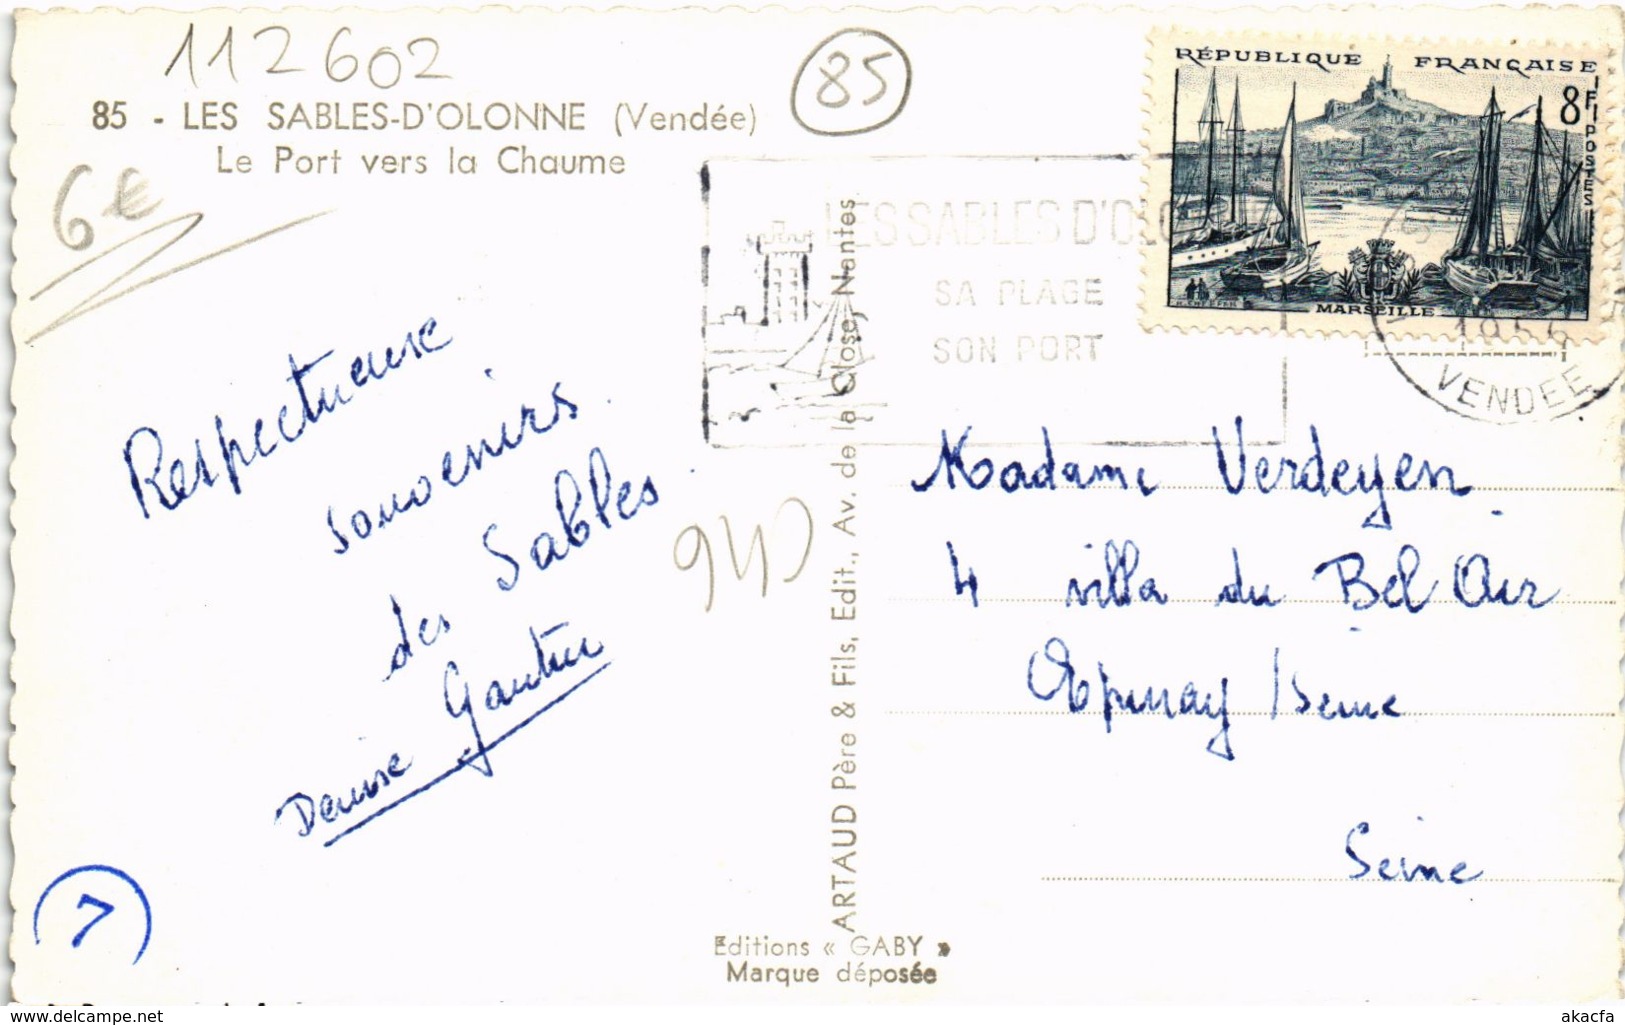 112602
85
85 - LES SABLES-D'OLONNE (Vendée)
Le Port vers la Chaume
6€
RÉPUBLIQUE FRANÇAISE
8F
POSTES
MARSEILLE
LES SABLES D'OLO
SA PLAGE
SON PORT
1956
VENDEE
Respectueuse
souvenirs
des Sables
Denise Gautier
Madame Verdeyen
4 villa du Bel Air
Epinay / Seine
Seine
ARTAUD Père & Fils, Edit., Av. de la Close, Nantes
Editions « GABY »
Marque déposée
delcampe.net
akacfa